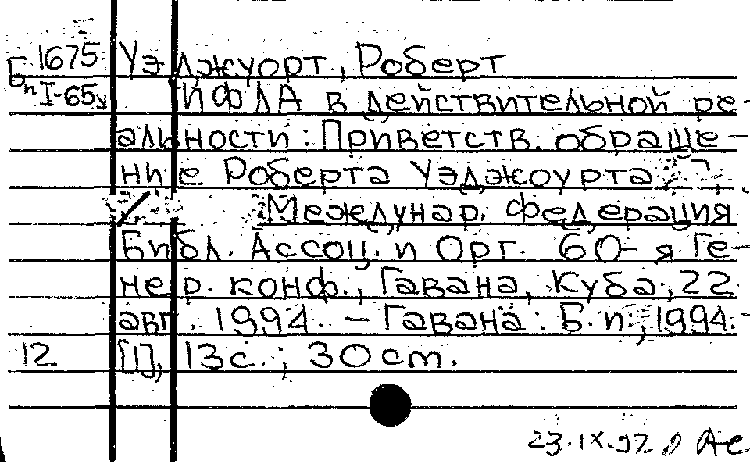 Б 1675 Уэджуорт, Роберт
п I-65 ИФЛА в действительной ре-
альности: Приветств. обраще-
ние Роберта Уэджоурта,
Междунар. федерация
Библ. Ассоц. и Орг. 60-я Ге-
нер. конф., Гавана, Куба, 22
авг. 1994. - Гавана: Б.и., 1994.-
12 [1], 13с.; 30 см.
23.IX.97